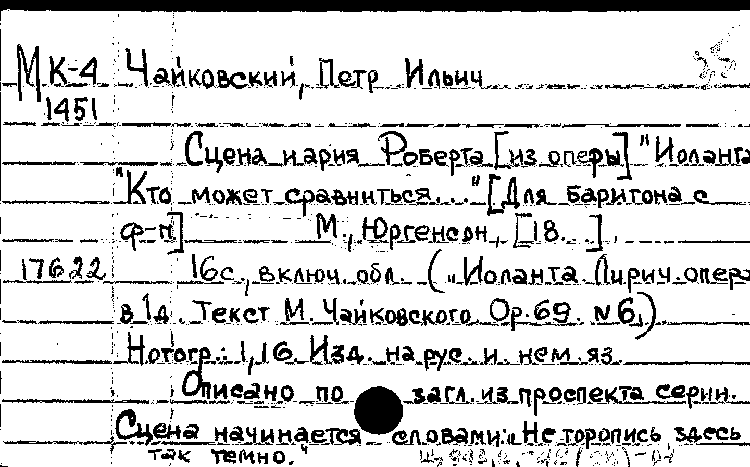 МК-4 Чайковский, Петр Ильич
1451
Сцена и ария Роберта [из оперы] "Иоланта
"Кто может сравниться...." [Для баритона с
ф-п] М., Юргенсон, [18...].
17622 16с., включ. обл. („Иоланта. Лирич. опера
в 1д. Текст М. Чайковского. Op. 69. N 6.)
Нотогр.: 1,16. Изд. на рус. и. нем. яз.
Описано по загл. из проспекта серии.
Сцена начинается словами: „Не торопись, здесь
так темно."